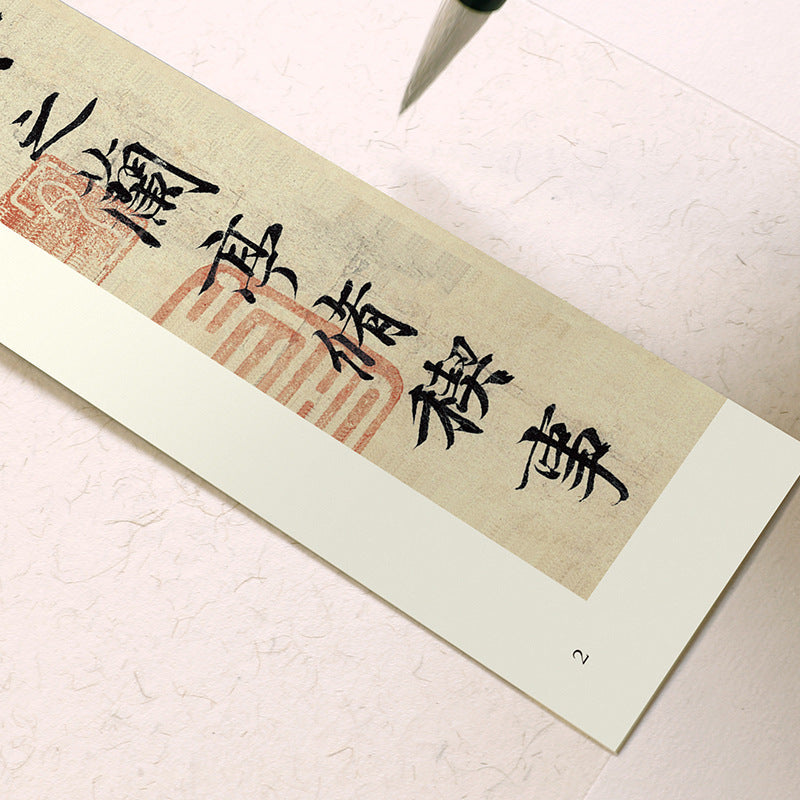 之蘭亭脩稧事
2